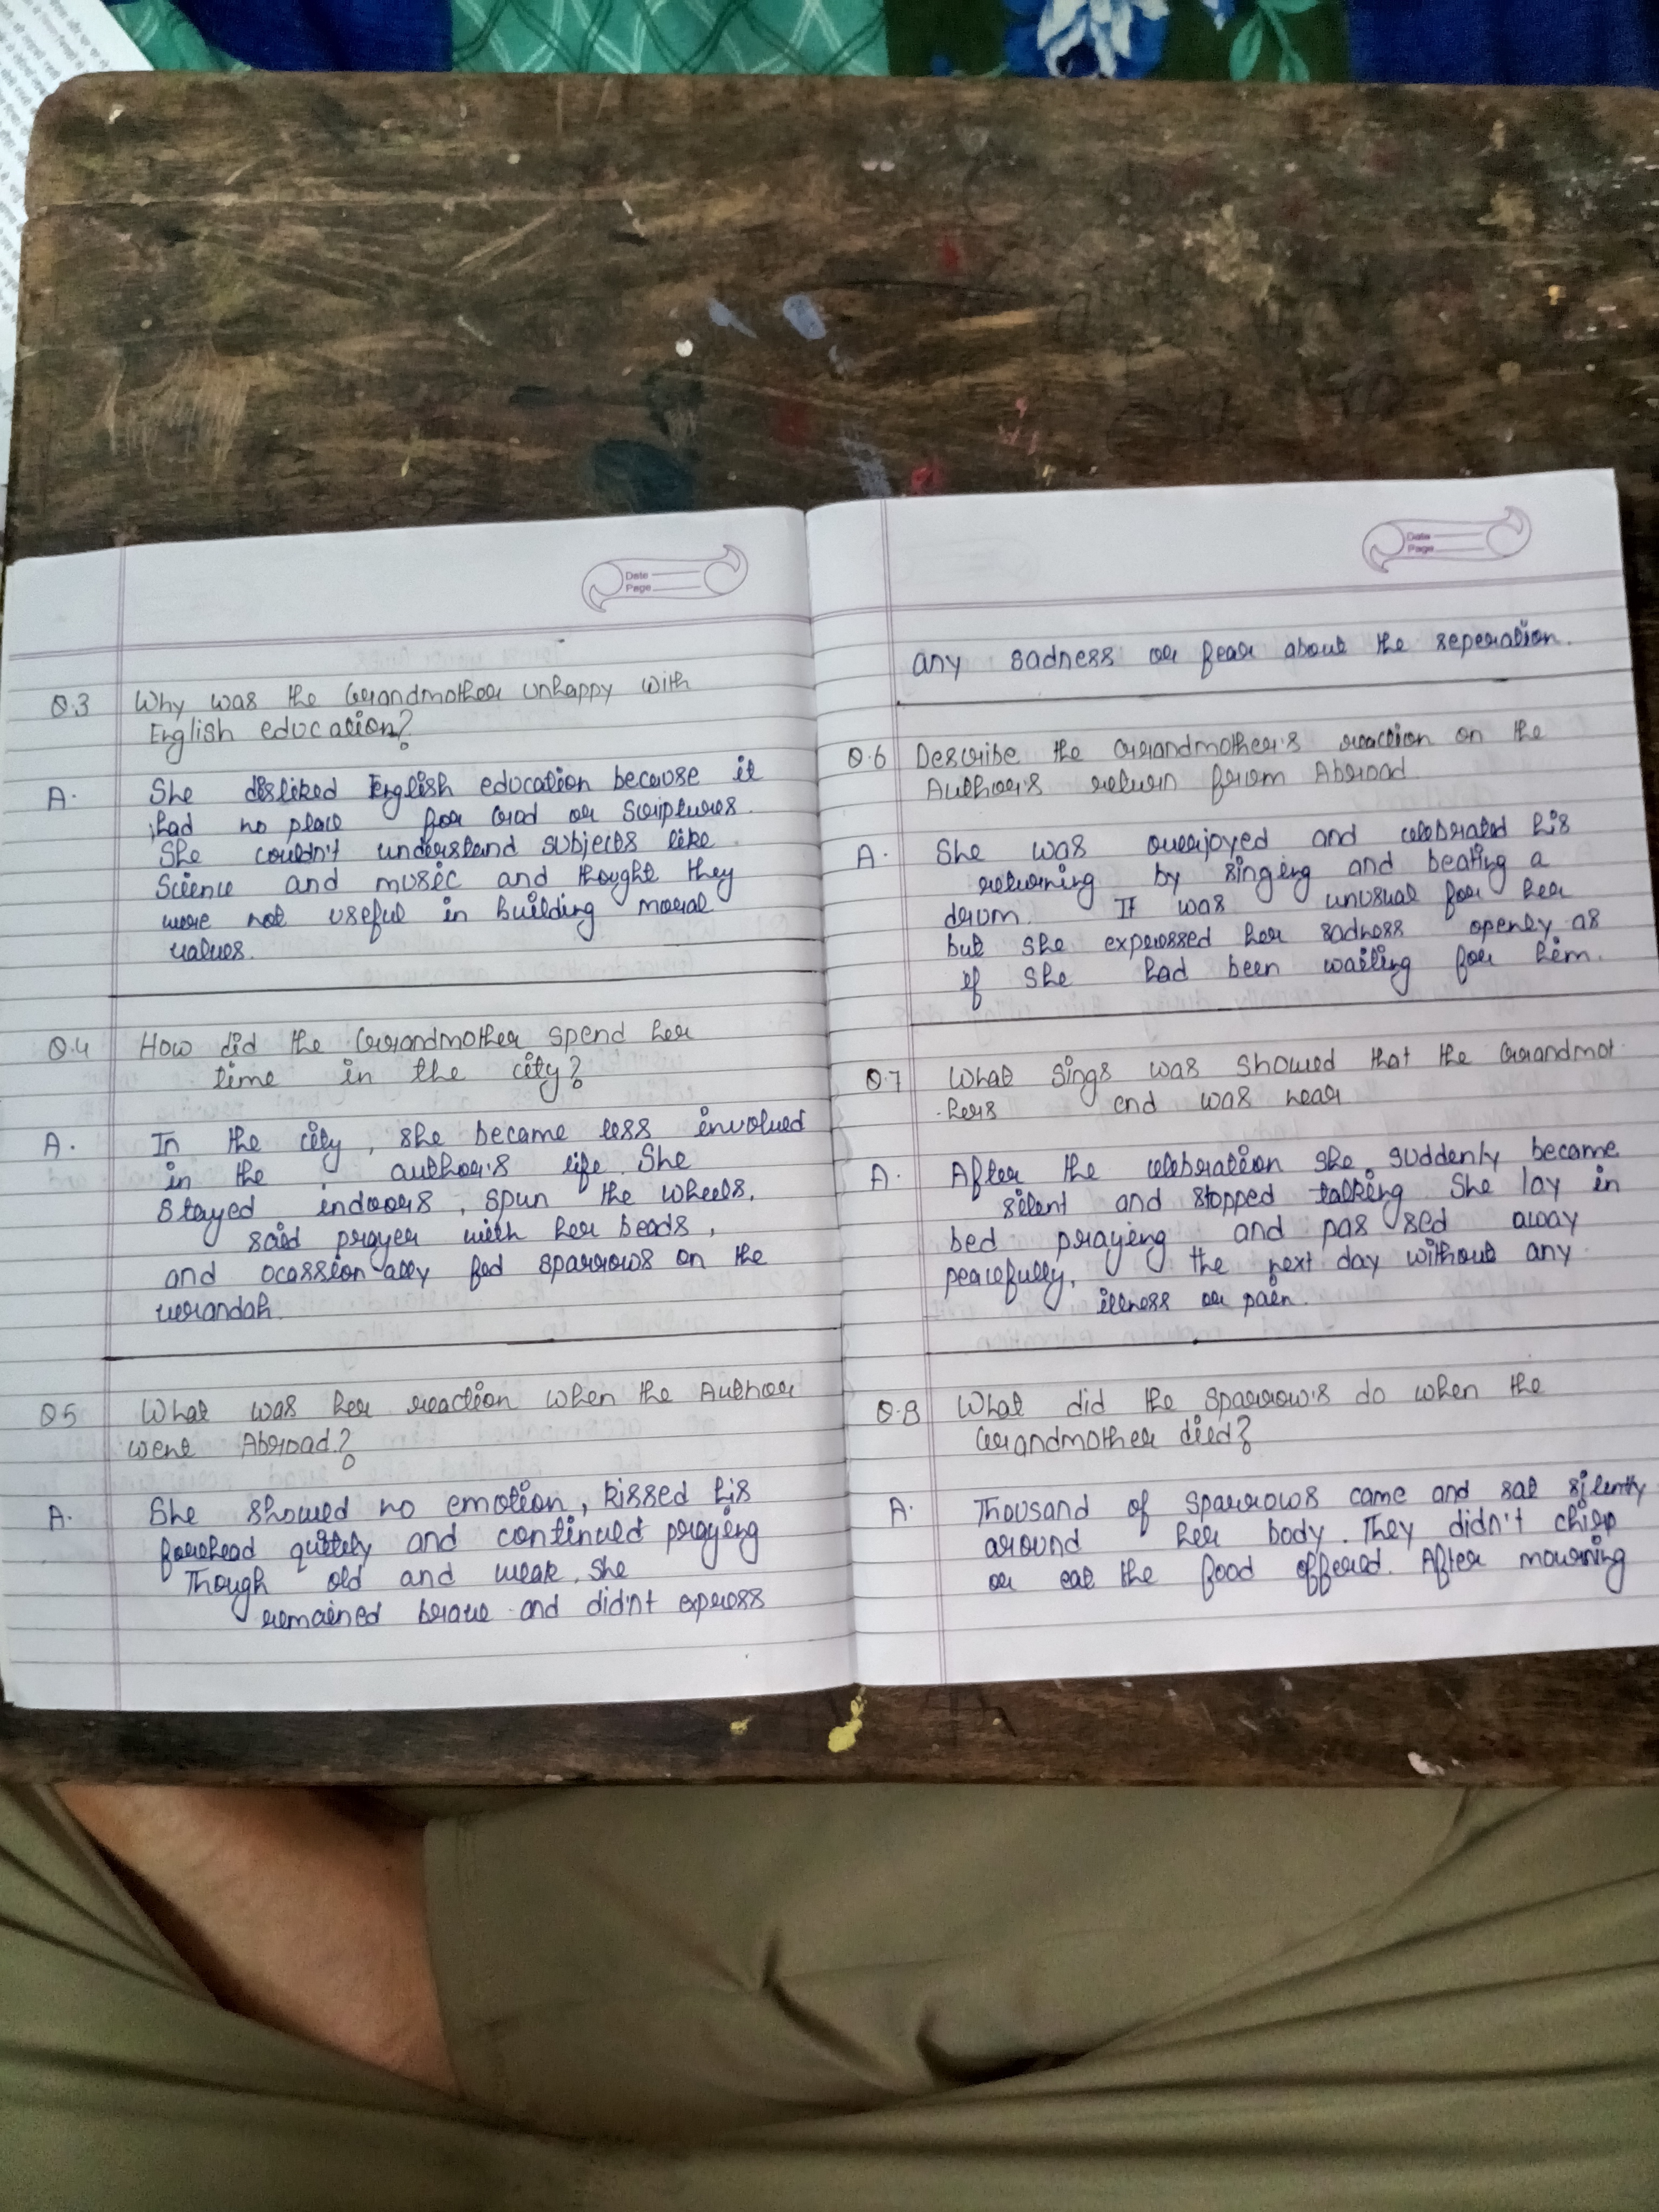 Date
Page
Q.3 Why was the Grandmother unhappy with
English education?
A. She disliked English education because it
had no place for God or Scriptures.
She couldn't understand subjects like
Science and music and thought they
were not useful in building moral
values.
Q.4 How did the Grandmother spend her
time in the city?
A. In the city, she became less involved
in the author's life. She
stayed indoors, spun the wheels,
said prayer with her beads,
and ocassionally fed sparrows on the
verandah.
Q5 What was her reaction when the Author
went Abroad?
A. She showed no emotion, kissed his
forehead quitely and continued praying
Though old and weak, she
remained brave and didn't express
Date
Page
any sadness or fear about the seperation.
Q.6 Describe the Grandmother's reaction on the
Author's return from Abroad.
A. She was overjoyed and celebrated his
returning by singing and beating a
drum. It was unusual for her
but she expressed her sadness openly as
if she had been waiting for him.
Q.7 What sings was showed that the Grandmot
-hers end was near
A. After the celebration she suddenly became
silent and stopped talking. She lay in
bed praying and passed away
peacefully, the next day without any
illness or pain.
Q.8 What did the sparrow's do when the
Grandmother died?
A. Thousand of sparrows came and sat silently
around her body. They didn't chirp
or eat the food offered. After mourning